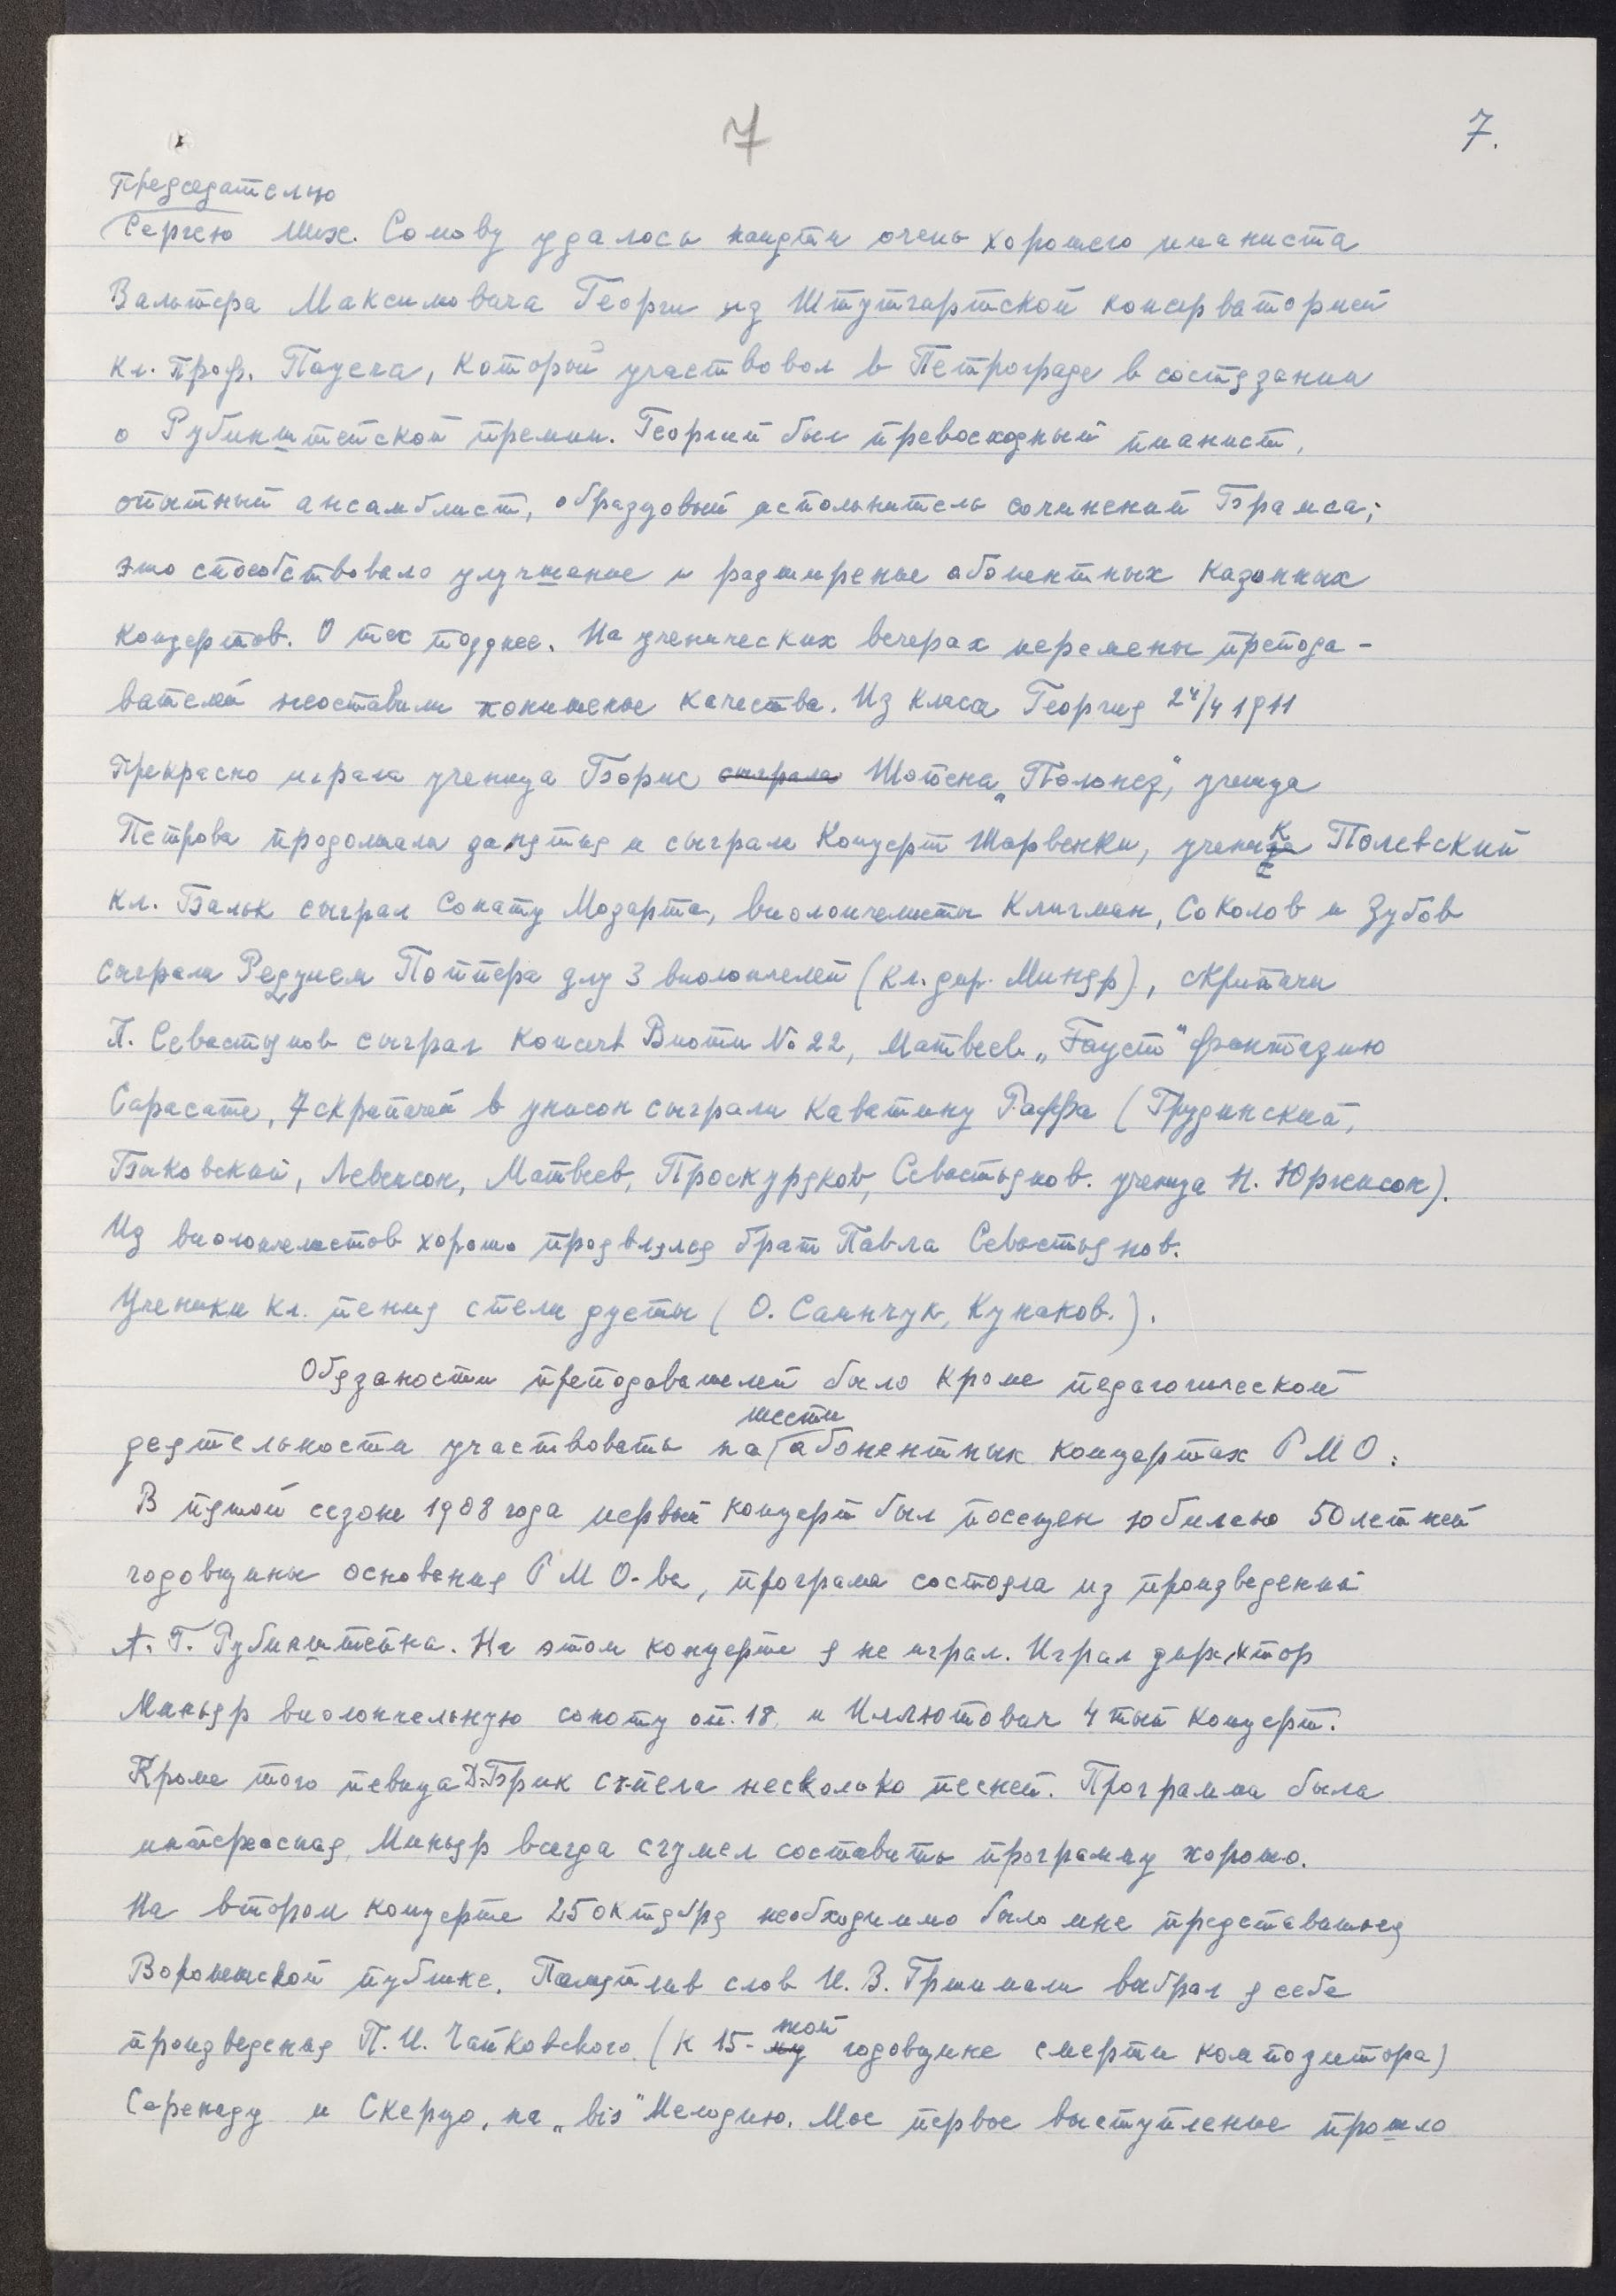 7
7.
Председателю
Сергею Мих. Сомову удалось наидти очень хорошего пианиста
Вальтера Максимовича Георги из Штутгартской консерваторией
кл. проф. Пауера, который участвовал в Петрограде в состязании
о Рубинштейской премии. Георгий был превосходный пианист,
опытный ансамблист, образцовый исполнитель сочинений Брамса;
это способствовало улучшение и разширение абонентных казонных
концертов. О тех позднее. На ученических вечерах перемены препода-
вателей неоставили понижение качества. Из класа Георгия 24/4 1911
Прекрасно играла ученица Борис сыграла Шопена „Полонез", учница
Петрова продолжала занятия и сыграли Концерт Шарвенки, ученик Полевский
кл. Бальк сыграл Сонату Моцарта, виолончелисты Клигман, Соколов и Зубов
сыграли Реквием Поппера для 3 виолончелей (кл. дир. Миньяр), скрипачи
П. Севастьянов сыграл Koncert Виоти № 22, Матвеев „Фауст" фантазию
Сарасате, 7 скрипачей в унисон сыграли Каватину Раффа (Грудинский,
Быковский, Левенсон, Матвеев, Проскуряков, Севастьянов. ученица Н. Юргенсон).
Из виолончелистов хорошо проявлялся брат Павла Севастьянов.
Ученики кл. пения спели дуеты (О. Саинчук, Кунаков.).
Обязаности преподавателей было кроме педагогической
деятельности участвовать на шести абонентных концертах РМО:
В пятом сезоне 1908 года первый концерт был посещен юбилею 50 летней
годовщины основания РМО-ва, програма состояла из произведений
А. Г. Рубинштейна. На этом концерте я не играл. Играл директор
Миньяр виолончельную сонату оп. 18, и Иллютович 4 тый концерт.
Кроме того певица Д. Брик с-пела несколько песней. Программа была
интересная, Миньяр всегда сгумел составить программу хорошо.
На втором концерте 25 октября необходимо было мне представиться
Воронежской публике. Памятлив слов И. В. Гржимали выбрал я себе
произведения П. И. Чайковского (к 15-ной годовщине смерти композитора)
Серенаду и Скерцо, на „bis" Мелодию. Мое первое выступление прошло